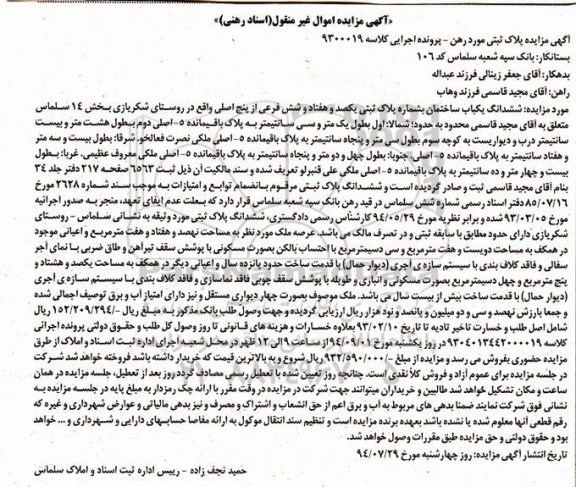 «آگهی مزایده اموال غیر منقول(اسناد رهنی)»
آگهی مزایده پلاک ثبتی مورد رهن - پرونده اجرایی کلاسه ۹۳۰۰۰۱۹
بستانکار: بانک سپه شعبه سلماس کد ۱۰۶
بدهکار: آقای جعفر زینالی فرزند عبداله
راهن: آقای مجید قاسمی فرزند وهاب
مورد مزایده: ششدانگ یکباب ساختمان بشماره پلاک ثبتی یکصد و هفتاد و شش فرعی از پنج اصلی واقع در روستای شکریازی بخش ۱۴ سلماس
متعلق به آقای مجید قاسمی محدود به حدود: شمالا: اول بطول یک متر و سی سانتیمتر به پلاک باقیمانده ۵-اصلی دوم بطول هشت متر و بیست
سانتیمتر درب و دیواریست به کوچه سوم بطول سی متر و پنجاه سانتیمتر به پلاک باقیمانده ۵-اصلی ملکی نصرت فعالخو. شرقا: بطول بیست و سه متر
و هفتاد سانتیمتر به پلاک باقیمانده ۵-اصلی، جنوبا: بطول چهل و دو متر و پنجاه سانتیمتر به پلاک باقیمانده ۵-اصلی ملکی معروف عظیمی. غربا: بطول
بیست و چهار متر و ده سانتیمتر به پلاک باقیمانده ۵-اصلی ملکی علی قنبرلو تعریف شده و سند مالکیت آن ذیل ثبت ۶۵۶۳ صفحه ۲۱۷ دفتر جلد ۳۴
بنام آقای مجید قاسمی ثبت و صادر گردیده است و ششدانگ پلاک ثبتی مرقوم بانضمام توابع و امتیازات به موجب سند شماره ۲۶۲۸ مورخ
۸۵/۰۷/۱۶ دفتر اسناد رسمی شماره شش سلماس در قید رهن بانک سپه شعبه سلماس قرار دارد که بعلت عدم ایفای تعهد، منجر به صدور اجرائیه
مورخ ۹۳/۰۳/۰۵ شده و برابر نظریه مورخ ۹۴/۰۵/۲۹ کارشناس رسمی دادگستری، ششدانگ پلاک ثبتی مورد وثیقه به نشانی سلماس - روستای
شکریازی دارای حدود مطابق با سابقه ثبتی و در تصرف مالک می باشد. عرصه ملک مورد نظر به مساحت نهصد و هفتاد و هفت مترمربع و اعیانی موجود
در همکف به مساحت دویست و هفت مترمربع و سی دسیمترمربع با احتساب بالکن بصورت مسکونی با پوشش سقف تیرآهن و طاق ضربی با نمای آجر
سفالی و فاقد کلاف بندی با سیستم سازه ی آجری (دیوار حمال) با قدمت ساخت حدود پانزده سال و اعیانی دیگر در همکف به مساحت یکصد و هشتاد و
پنج مترمربع و چهل دسیمترمربع بصورت مسکونی و انباری و طویله با پوشش سقف چوبی فاقد نماسازی و فاقد کلاف بندی با سیستم سازه ی آجری
(دیوار حمال) با قدمت ساخت بیش از بیست سال می باشد. ملک موصوف بصورت چهار دیواری مستقل و نیز دارای امتیاز آب و برق توصیف اجمالی شده
و جمعا بارزش نهصد و سی و دو میلیون و پانصد و نود هزار ریال ارزیابی گردیده و جهت وصول طلب بانک مذکور به مبلغ ریال -/۱۵۲/۲۰۹/۲۹۴ ریال
شامل اصل طلب و خسارت تاخیر تادیه تا تاریخ ۹۳/۰۲/۱۰ بعلاوه خسارات و هزینه های قانونی تا روز وصول کل طلب و حقوق دولتی پرونده اجرائی
کلاسه ۹۳۰۴۰۱۳۴۴۲۰۰۰۰۱۹ در روز یکشنبه مورخ ۹۴/۰۹/۰۱ از ساعت ۹ الی ۱۲ ظهر در محل شعبه اجرای اداره ثبت اسناد و املاک از طرق
مزایده حضوری بفروش می رسد و مزایده از مبلغ -/۹۳۲/۵۹۰/۰۰۰ ریال شروع و به بالاترین قیمت که خریدار داشته باشد فروخته خواهد شد شرکت
در جلسه مزایده برای عموم آزاد و فروش کلا نقدی است. چنانچه روز تعیین شده با تعطیل رسمی مصادف گردد روز بعد از تعطیل، جلسه مزایده در همان
ساعت و مکان تشکیل خواهد شد طالبین و خریداران میتوانند جهت شرکت در مزایده در وقت مقرر با ارائه چک رمزدار به مبلغ پایه در جلسه مزایده به
نشانی فوق شرکت نمایند ضمنا بدهی های مربوط به آب و برق اعم از حق انشعاب و اشتراک و مصرف و نیز بدهی مالیاتی و عوارض شهرداری و غیره که
رقم قطعی آنها معلوم شده یا نشده باشد بعهده برنده مزایده است و تنظیم سند انتقال موکول به ارائه مفاصا حسابهای دارایی و شهرداری و ... خواهد
بود و حقوق دولتی و حق مزایده طبق مقررات وصول خواهد شد.
تاریخ انتشار آگهی مزایده: روز چهارشنبه مورخ ۹۴/۰۷/۲۹
حمید نجف زاده - رییس اداره ثبت اسناد و املاک سلماس